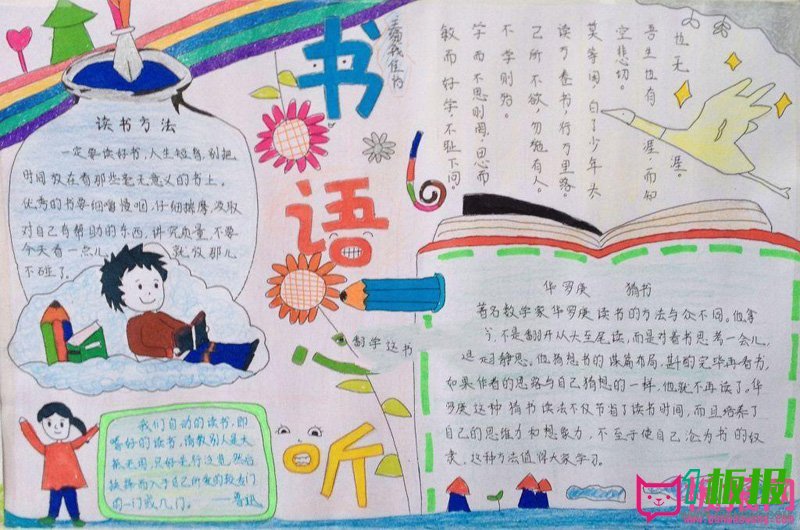 书
语
听
读书方法
一定要读好书,人生短暂,别把
时间放在有那些毫无意义的书上。
优秀的书要细嚼慢咽,仔细揣摩,汲取
对自己有帮助的东西,讲究质量,不要
今天看一点儿,
就没那儿
不碰了。
我们自动的读书,即
嗜好的读书,请教别人是大
抵无用,只好先行泛览,然后
抉择而入于自己所爱的较专门
的一门或几门。——鲁迅
翻字这书
也无涯。
吾生也有涯,而知
空悲切。
莫等闲,白了少年头
读万卷书,行万里路。
己所不欲,勿施有人。
不学则殆。
学而不思则罔,思而
敏而好学,不耻下问。
华罗庚 猜书
著名数学家华罗庚读书的方法与众不同。他拿
不是翻开从头至尾读,而是对着书思考一会儿,
闭目静思。他猜想书的谋篇布局,斟酌完毕再看书,
如果作者的思路与自己猜想的一样,他就不再读了。华
罗庚这种猜书读法不仅节省了读书时间,而且培养了
自己的思维力和想象力,不至于使自己沦为书的奴
隶,这种方法值得大家学习。
板报网